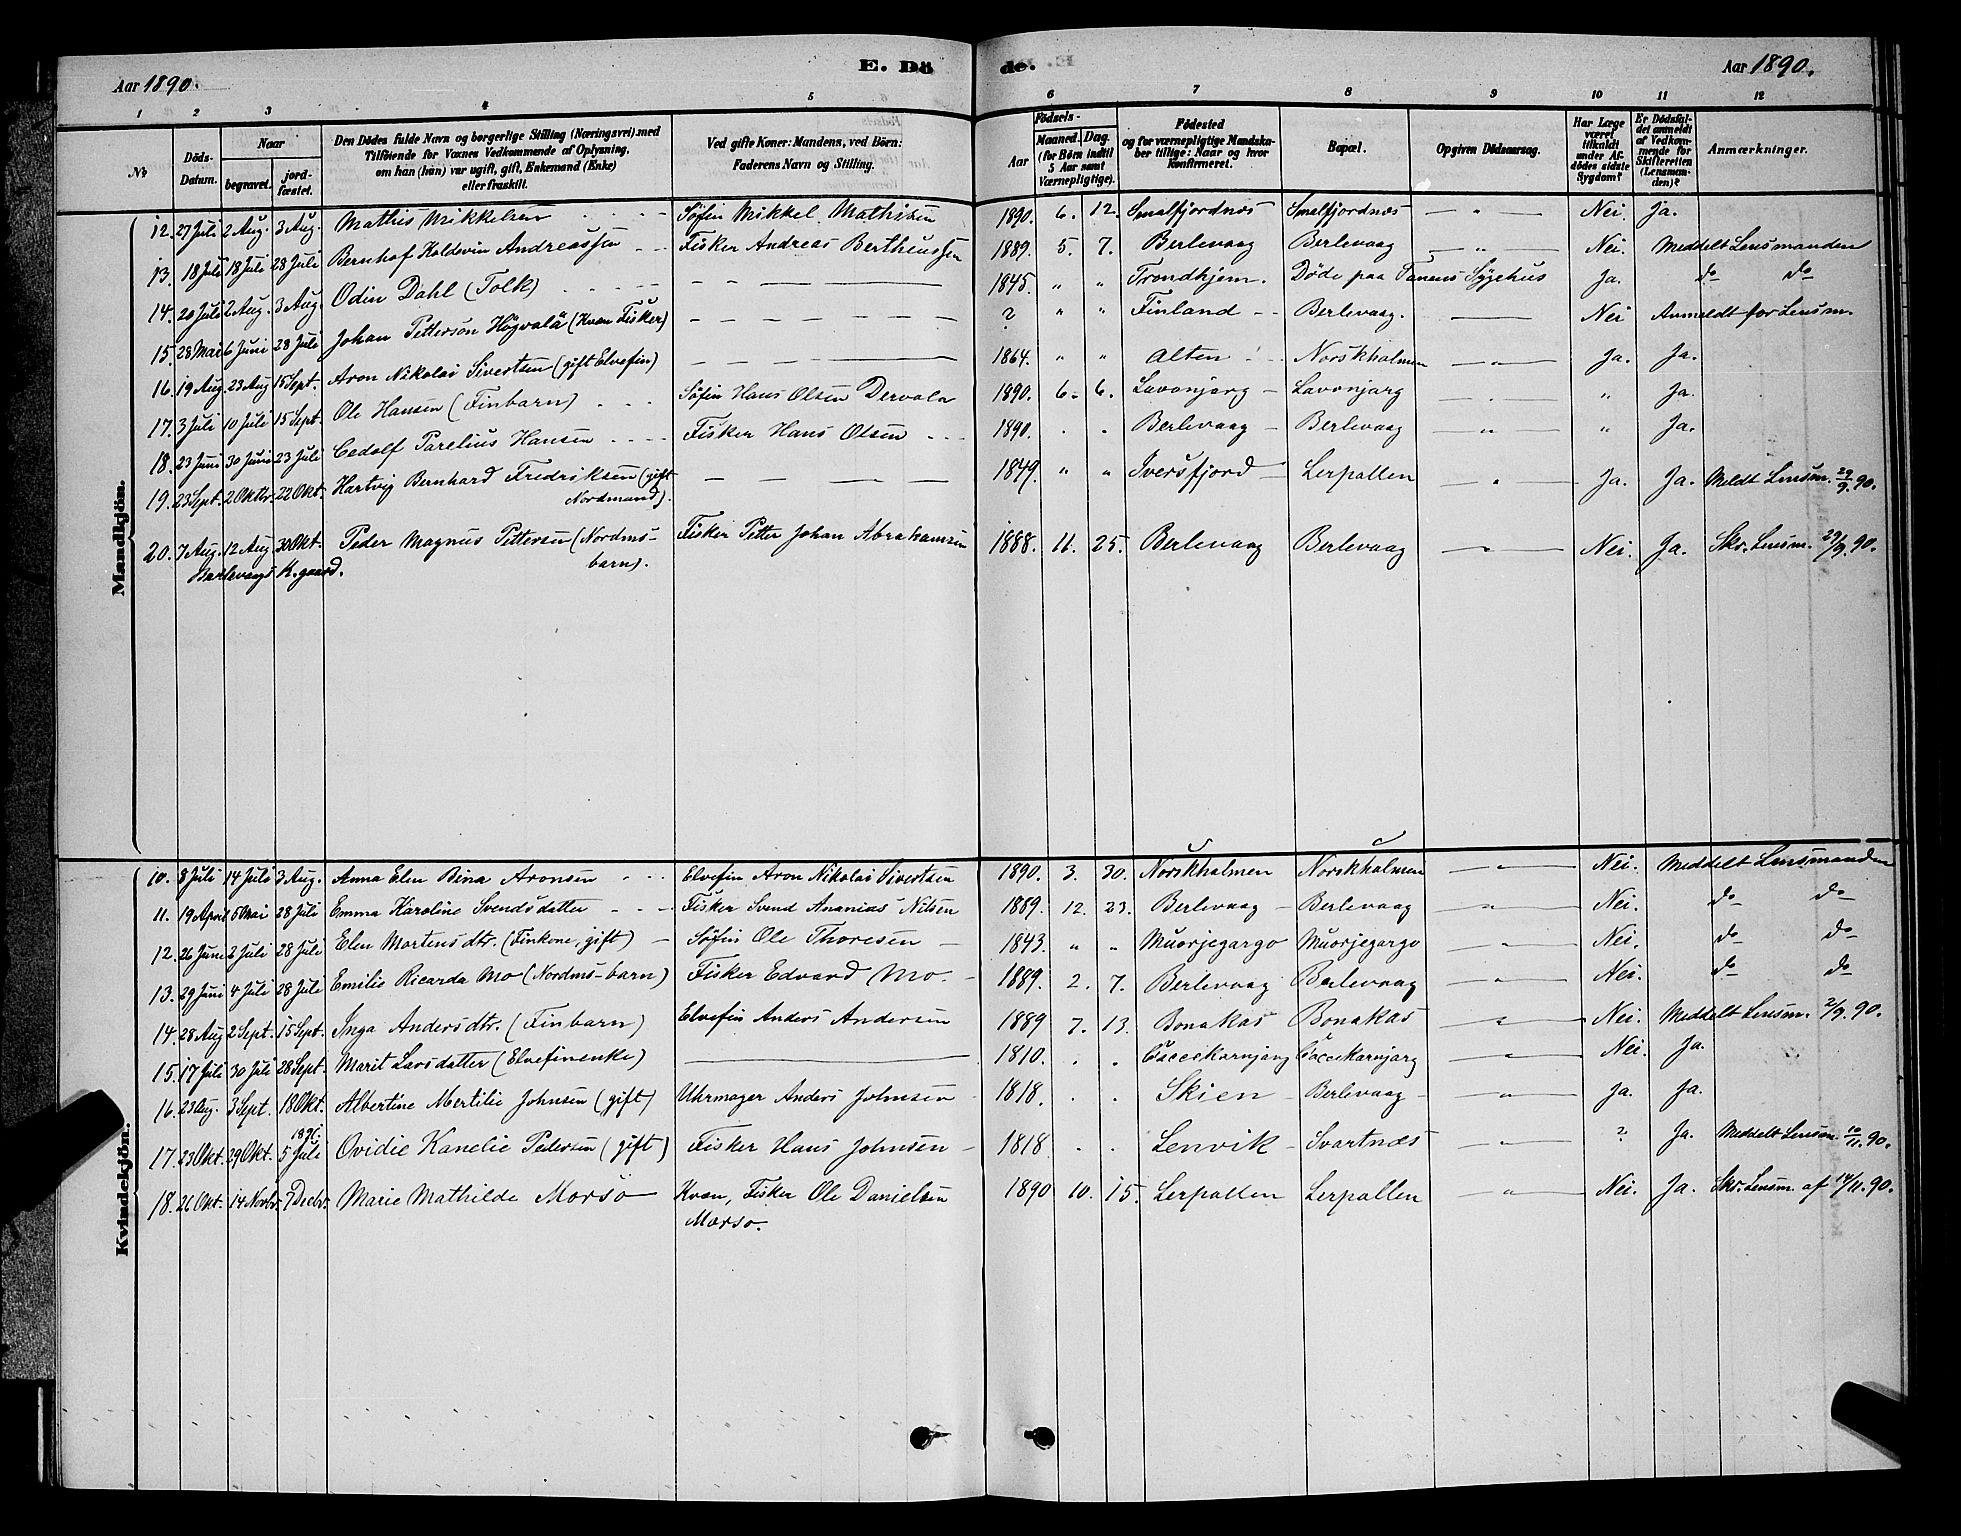 Aar 1890. E. Dö de. Aar 1890.
1 2 3 4 5 6 7 8 9 10 11 12
No
Döds-Datum.
Naar
begravet.
jordfæstet.
Den Dödes fulde Navn og borgerlige Stilling (Næringsvei) med
Tilföiende for Voxnes Vedkommende af Oplysning,
om han (hun) var ugift, gift, Enkemand (Enke)
eller fraskilt.
Ved gifte Koner: Mandens, ved Börn:
Faderens Navn og Stilling.
Födsels-
Aar
Maaned. Dag.
(for Börn indtil
5 Aar samt
Værnepligtige).
Födested
og for værnepligtige Mandska-
ber tillige: Naar og hvor
konfirmeret.
Bopæl.
Opgiven Dödsaarsag.
Har Læge
været
tilkaldt
under Af-
dödes sidste
Sygdom?
Er Dödsfal-
det anmeldt
af Vedkom-
mende for
Skifteretten
(Lensman-
den)?
Anmærkninger.
Mandkjön.
12. 27 Juli 2 Aug. 3 Aug. Mathis Mikkelsen Søfin Mikkel Mathisen 1890. 6. 12. Smalfjordnæs Smalfjordnæs — " — Nei. Ja.
13. 18 Juli 18 Juli 28 Juli Bernhof Haldevin Andreassen Fisker Andreas Bertheussen 1889. 5. 7. Berlevaag Berlevaag — " — Nei. Meddelt Lensmanden
14. 20 Juli 2 Aug. 3 Aug. Odin Dahl (Tolk) 1845. " " Trondhjem. Døde paa Tanens Sygehus Ja. do do
15. 28 Mai 6 Juni 28 Juli Johan Petterson Högvalä (Kvæn Fisker) ? " " Finland Berlevaag. — " — Nei Anmeldt for Lensm.
16. 19 Aug 23 Aug 15 Sept. Aron Nikolai Sivertsen (gift Elvefin) 1864. " " Alten Norskholmen — " — Ja. Ja.
17. 3 Juli 10 Juli 15 Sept. Ole Hansen (Finbarn) Søfin Hans Olsen Dervola 1890. 6. 6. Lavonjarg Lavonjarg — " — " Ja.
18. 23 Juni 30 Juni 23 Juli Cedolf Parelius Hansen Fisker Hans Olsen 1890. " " Berlevaag Berlevaag — " — " Ja.
19. 23 Sept. 2 Oktbr. 22 Okt. Hartvig Bernhard Fredriksen (gift 1849. " " Iversfjord Lerpollen — " — Ja. Ja. Meldt Lensm. 29/9. 90.
Nordmand).
20. 7 Aug. 12 Aug 30 Okt. Peder Magnus Pettersen (Nordms- Fisker Petter Johan Abrahamsen 1888. 11. 25. Berlevaag Berlevaag — " — Nei. Ja. Skr. Lensm. 29/9. 90.
Berlevaags K. gaard. barn).
Kvindekjön.
10. 8 Juli 14 Juli 3 Aug. Anna Elen Bina Aronsen Elvefin Aron Nikolai Sivertsen 1890. 3. 30. Norskholmen Norskholmen — " — Nei. Meddelt Lensmanden
11. 19 April 5 Mai 28 Juli Emma Karoline Svendsdatter Fisker Svend Ananias Nilsen 1889. 12. 23. Berlevaag Berlevaag — " — Nei. do do
12. 26 Juni 2 Juli 28 Juli Elen Mortensdtr. (Finkone, gift) Søfin Ole Thoresen 1843. " " Muorjegargo Muorjegargo — " — Nei. do do
13. 29 Juni 4 Juli 28 Juli Emilie Ricarda Mo (Nordms-barn) Fisker Edvard Mo. 1889. 2. 7. Berlevaag Berlevaag — " — Nei. do do
14. 28 Aug 2 Sept. 15 Sept. Inga Andersdtr. (Finbarn) Elvefin Anders Andersen 1889 7. 13. Bonakas Bonakas — " — Nei. Meddelt Lensm. 2/9. 90.
15. 17 Juli 30 Juli 28 Sept. Marit Larsdatter (Elvefinenke) 1810. " " Caccekarnjarg Caccekarnjarg — " — Nei. Ja.
16. 23 Aug. 3 Sept. 18 Okt. Albertine Mertilie Johnsen (gift) Uhrmager Anders Johnsen 1818. " " Skien Berlevaag — " — Ja. Ja.
1891.
17. 23 Okt. 29 Okt. 5 Juli Ovidie Kanelie Pedersen (gift) Fisker Hans Johnsen 1818 " " Lenvik Svartnæs — " — ? Ja. Meddelt Lensm. 10/11. 90.
18. 26 Okt. 14 Novbr. 7 Decbr. Marie Mathilde Morsø Kvæn, Fisker Ole Danielsen 1890 10. 15. Lerpollen Lerpollen — " — Nei. Ja. Skr. Lensm. af 14/11. 90.
Morsø.